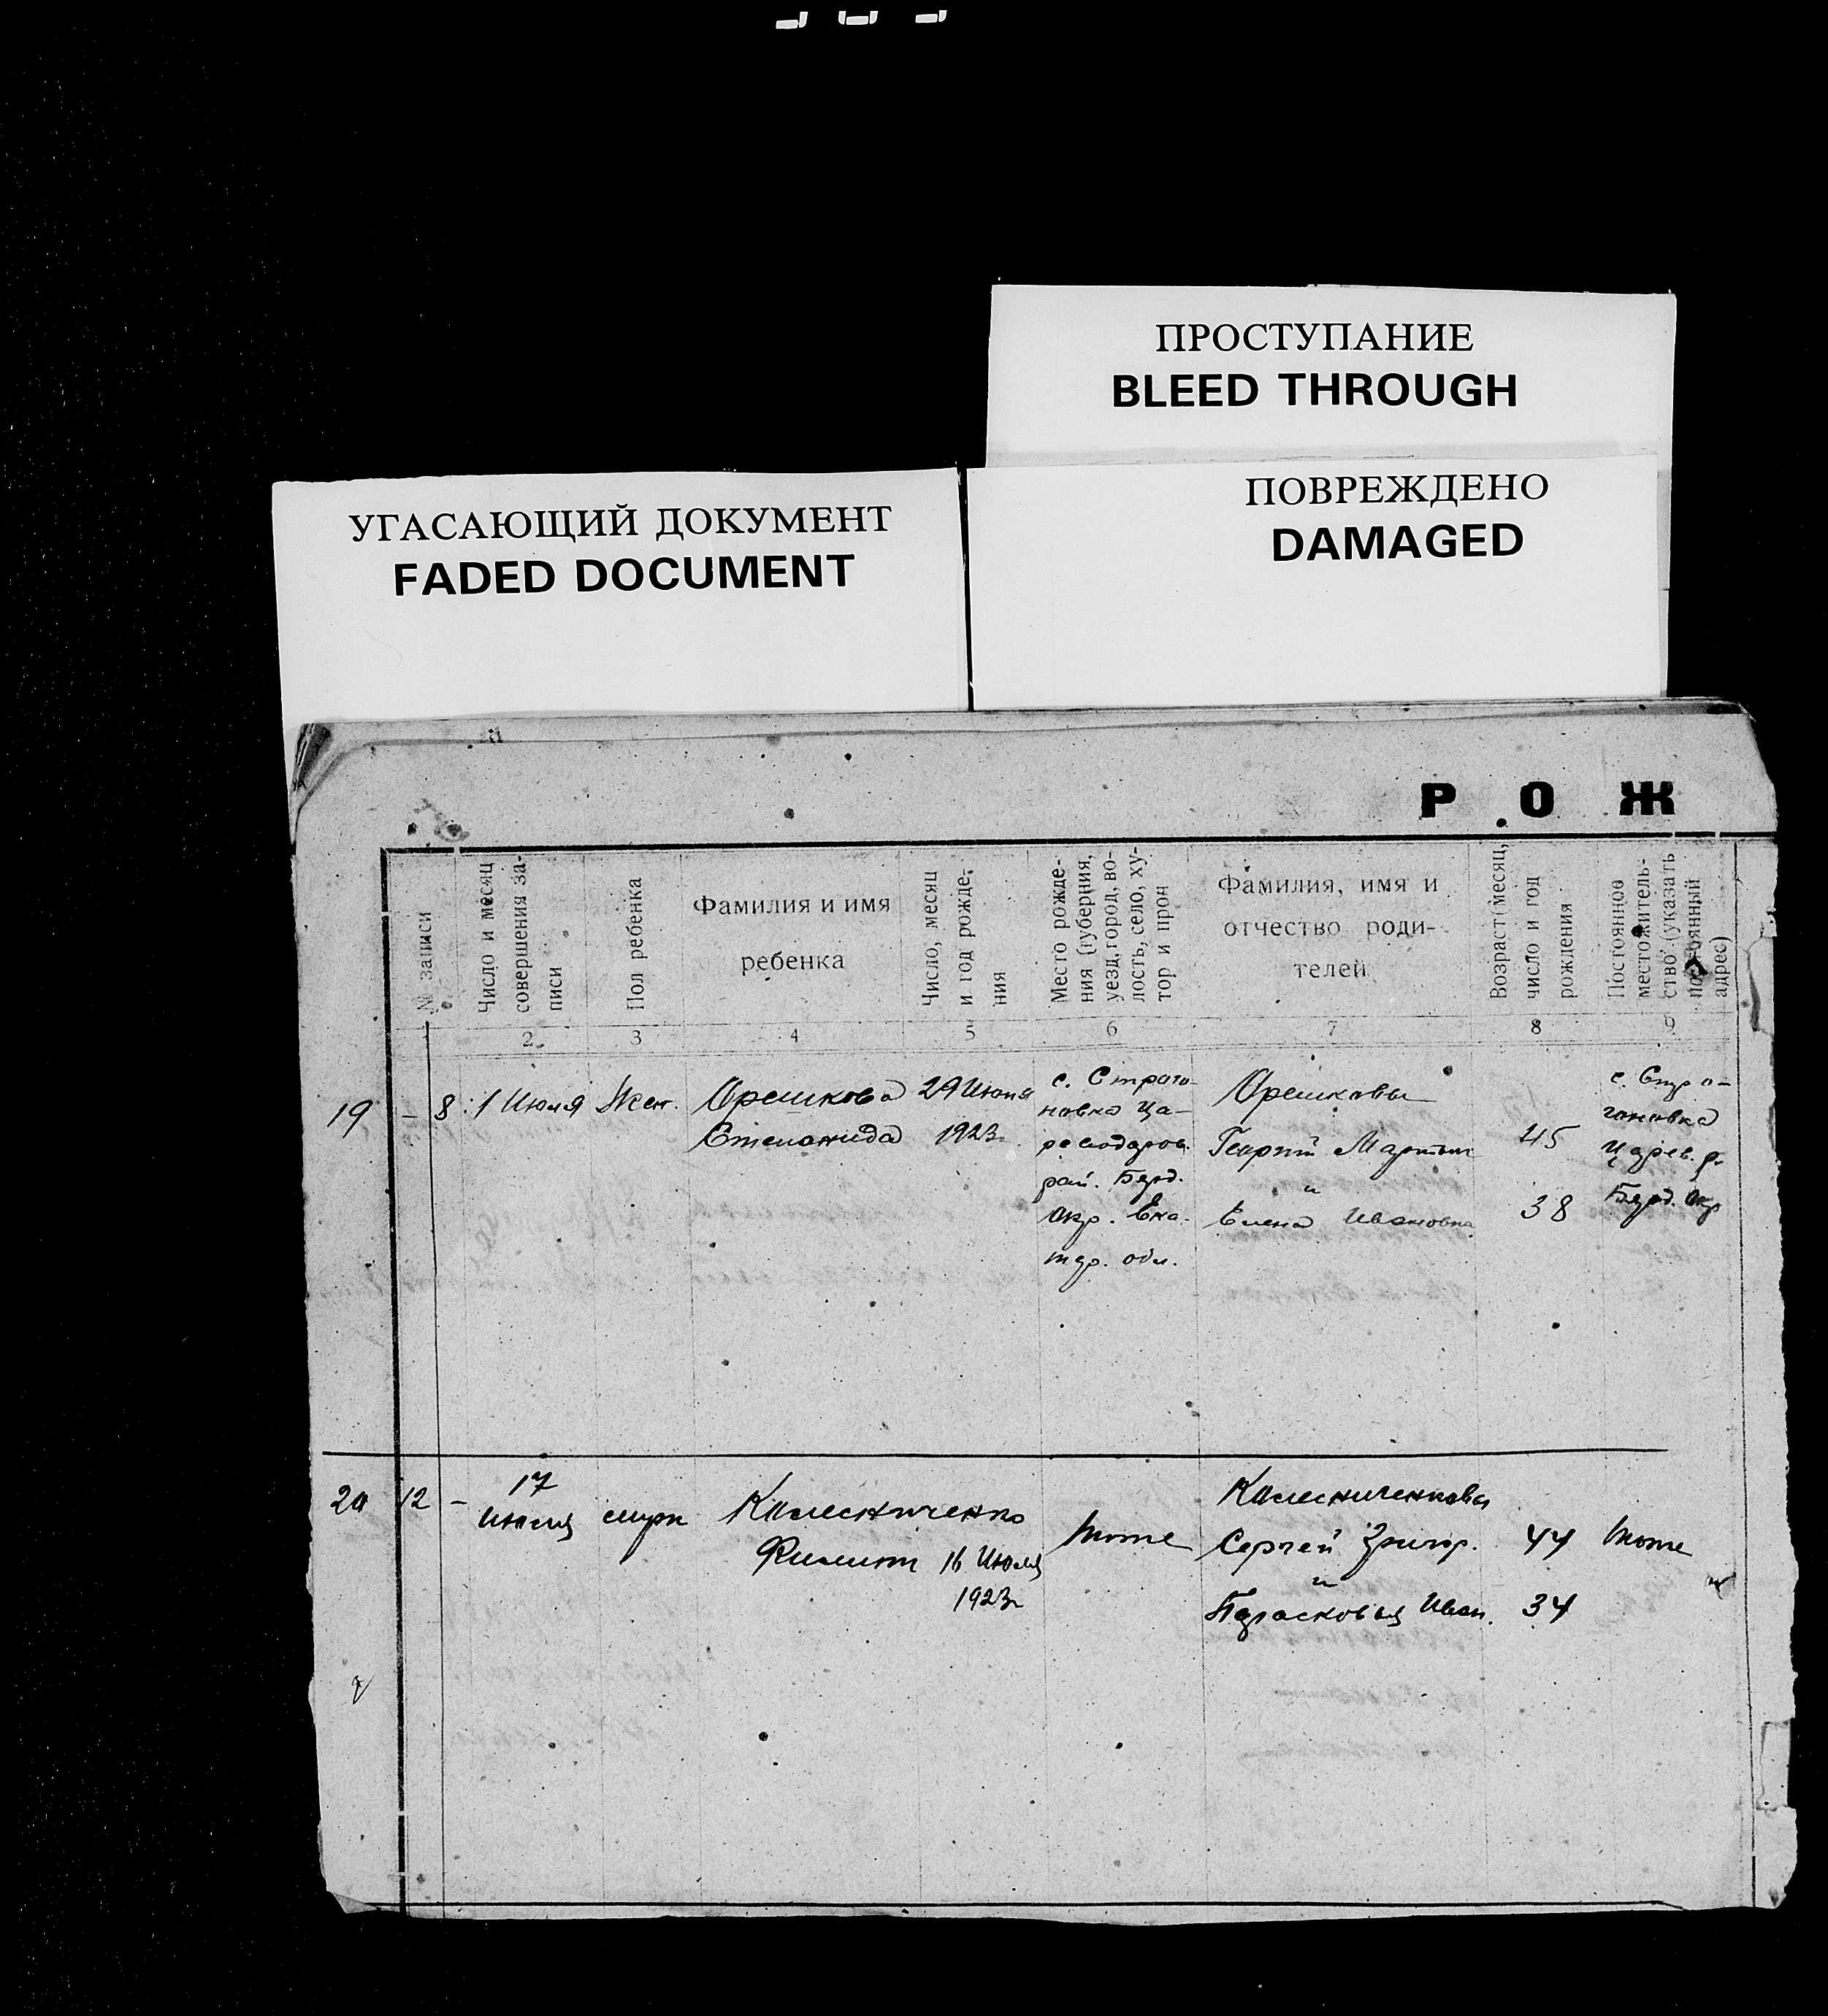 ПРОСТУПАНИЕ
BLEED THROUGH
УГАСАЮЩИЙ ДОКУМЕНТ
FADED DOCUMENT
ПОВРЕЖДЕНО
DAMAGED
Р О Ж
№ записи
Число и месяц
совершения за-
писи
Пол ребенка
Фамилия и имя
ребенка
Число, месяц
и год рожде-
ния
Место рожде-
ния (губерния,
уезд, город, во-
лость, село, ху-
тор и проч
Фамилия, имя и
отчество роди-
телей
Возраст (месяц,
число и год
рождения
Постоянное
местожитель-
ство (указать
постоянный
адрес)
2 3 4 5 6 7 8 9
19 – 8 1 Июля Жен.
Орешкова
Степанида
29 Июня
1923г.
с. Строга-
новка Ца-
рай. Берд.
Окр. Ека-
тер. обл.
Орешковы
Георгий Мартын
и
Елена Ивановна
45
38
с. Стро-
гановка
Царев. р.
Берд. Окр
20 12 –
17
июля
муж
Колесниченко
Филипп
16 Июля
1923г
тоже
Колесниченковы
Сергей Григор.
и
Парасковья Иван.
44
34
тоже